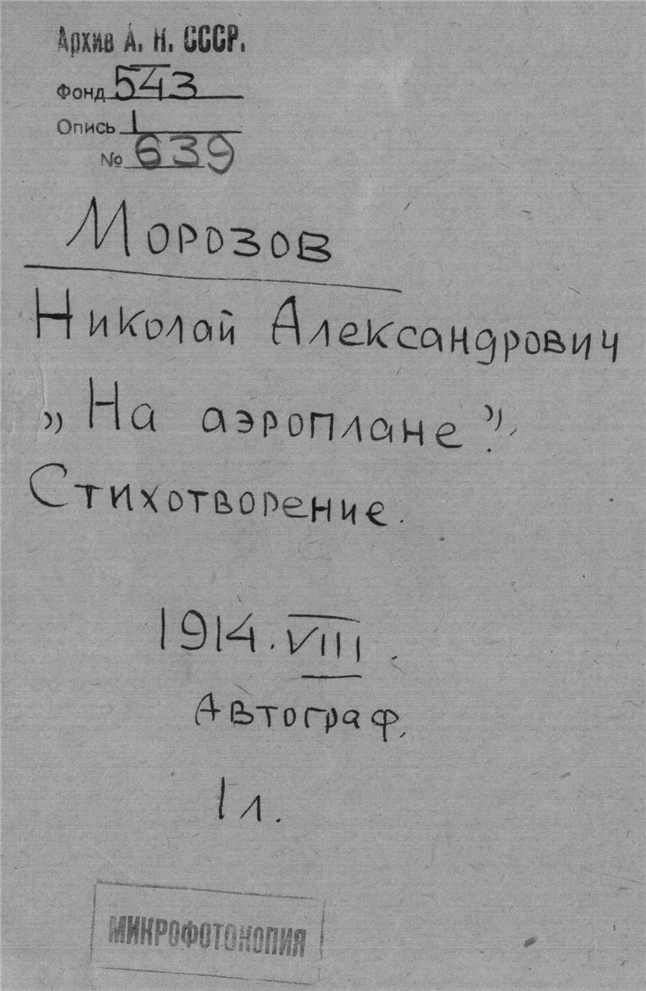 Архив А. Н. СССР.
Фонд 543
Опись 1
№ 639
Морозов
Николай Александрович
„На аэроплане".
Стихотворение.
1914. VIII.
Автограф.
1 л.
МИКРОФОТОКОПИЯ